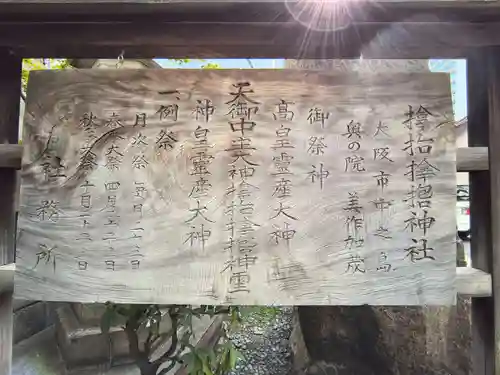 神社
大阪市中之島
奥の院 美作加茂
御祭神
高皇霊産大神
天御中主大神
神皇霊産大神
一例祭
月次祭 毎月二十三日
大祭 四月二十三日
秋大祭 十月二十三日
社務所